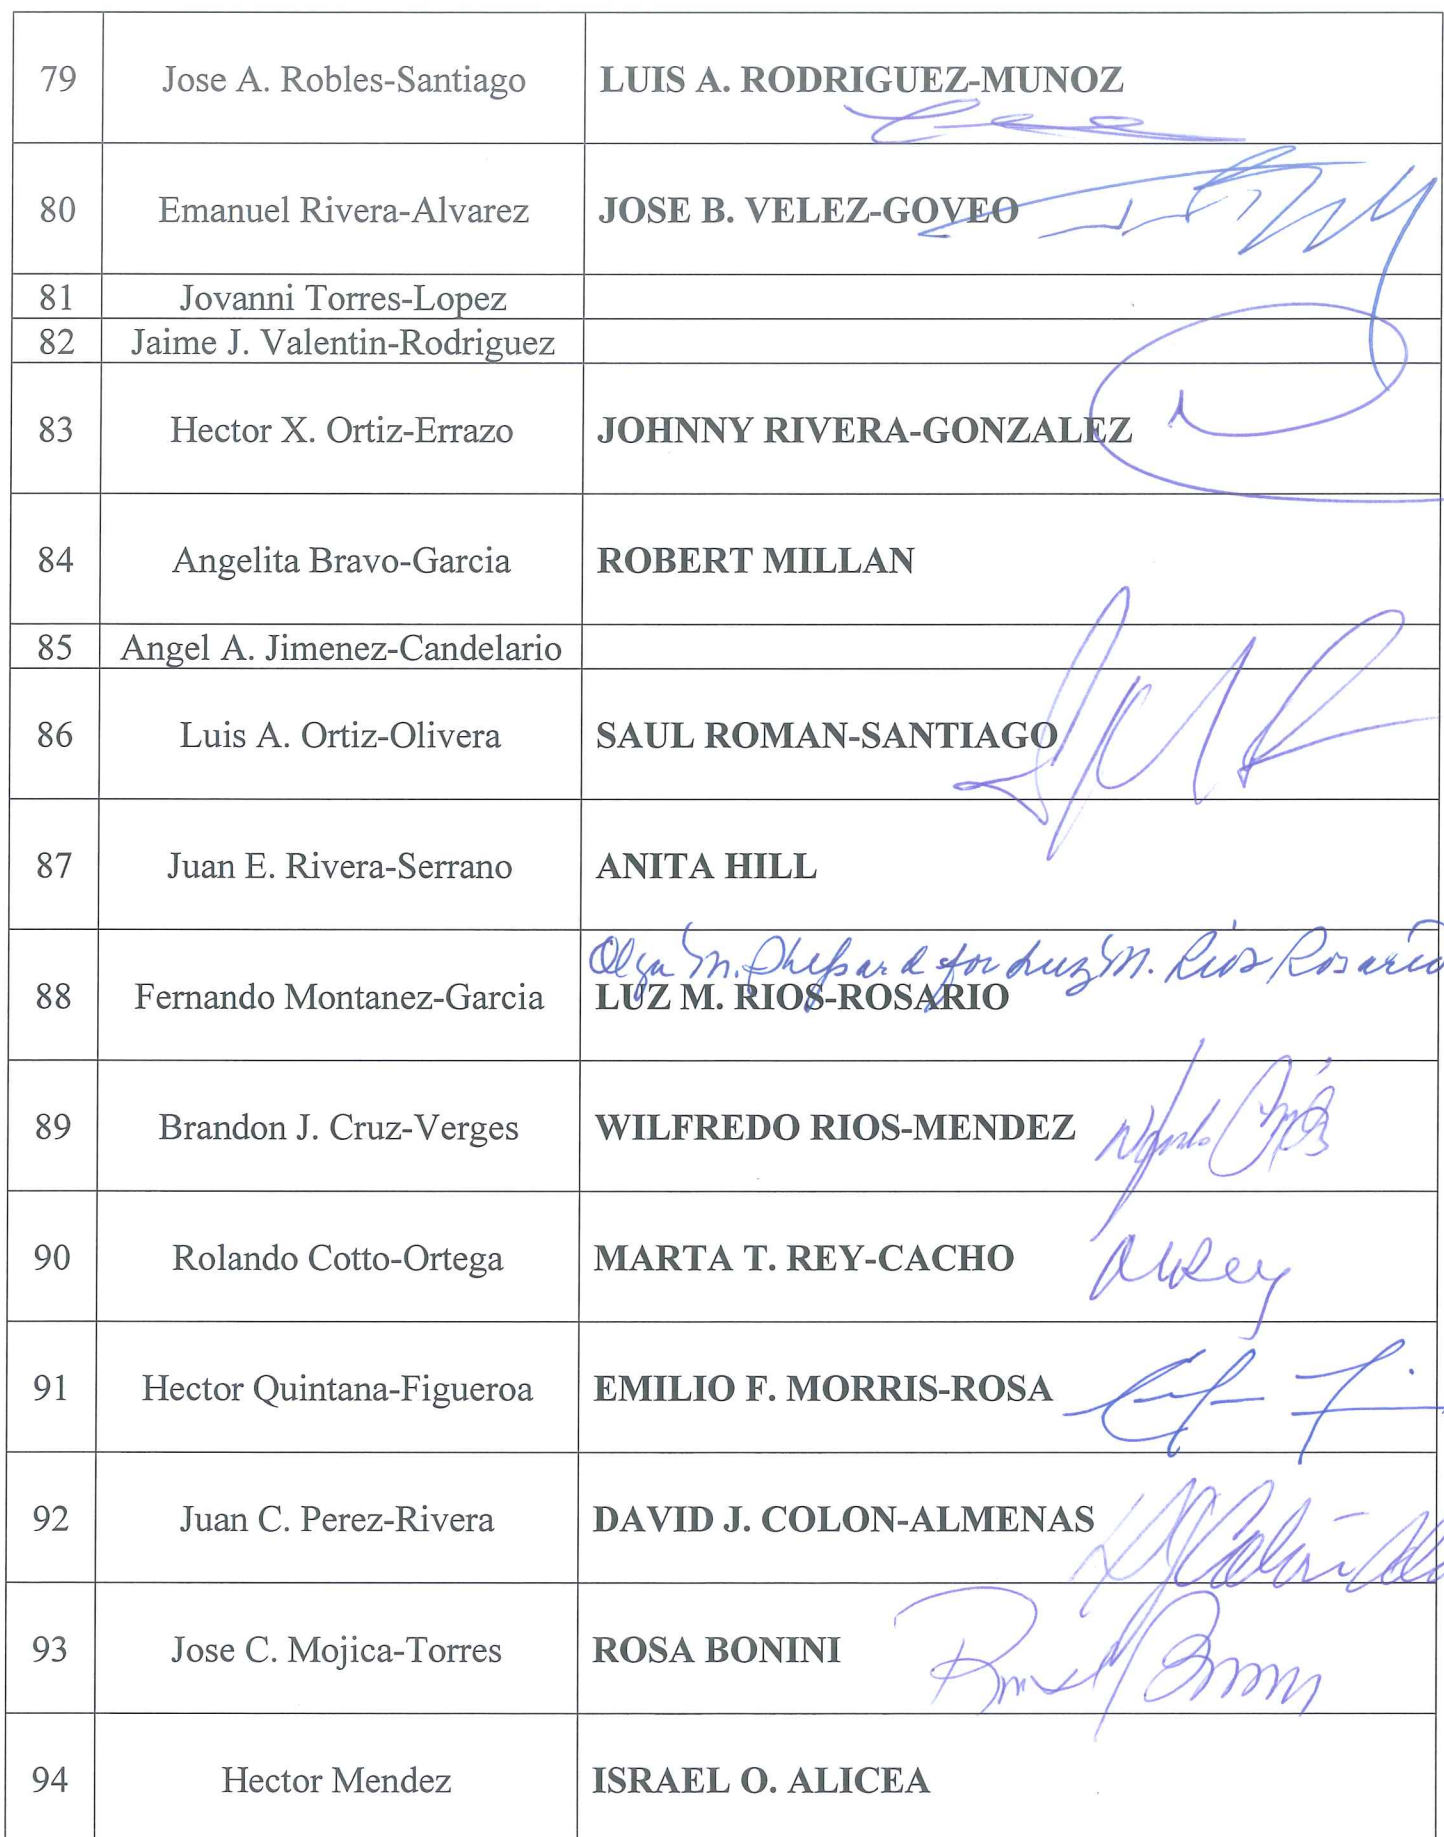 79 Jose A. Robles-Santiago LUIS A. RODRIGUEZ-MUNOZ
80 Emanuel Rivera-Alvarez JOSE B. VELEZ-GOVEO
81 Jovanni Torres-Lopez
82 Jaime J. Valentin-Rodriguez
83 Hector X. Ortiz-Errazo JOHNNY RIVERA-GONZALEZ
84 Angelita Bravo-Garcia ROBERT MILLAN
85 Angel A. Jimenez-Candelario
86 Luis A. Ortiz-Olivera SAUL ROMAN-SANTIAGO
87 Juan E. Rivera-Serrano ANITA HILL
Olga M. Shepard for Luz M. Rios Rosario
88 Fernando Montanez-Garcia LUZ M. RIOS-ROSARIO
89 Brandon J. Cruz-Verges WILFREDO RIOS-MENDEZ
90 Rolando Cotto-Ortega MARTA T. REY-CACHO
91 Hector Quintana-Figueroa EMILIO F. MORRIS-ROSA
92 Juan C. Perez-Rivera DAVID J. COLON-ALMENAS
93 Jose C. Mojica-Torres ROSA BONINI
94 Hector Mendez ISRAEL O. ALICEA